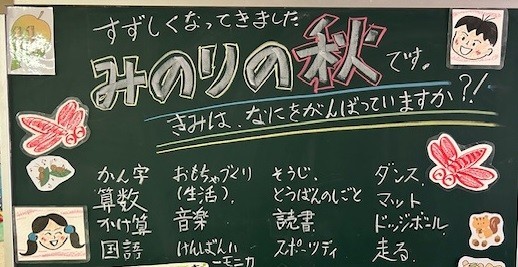 すずしくなってきました
みのりの秋です。
きみは、なにをがんばっていますか?!
かん字 おもちゃづくり そうじ、 ダンス
算数 (生活) とうばんのしごと マット
かけ算 音楽 読書 ドッジボール
国語 けんばんハ スポーツディ 走る
ーモニカ